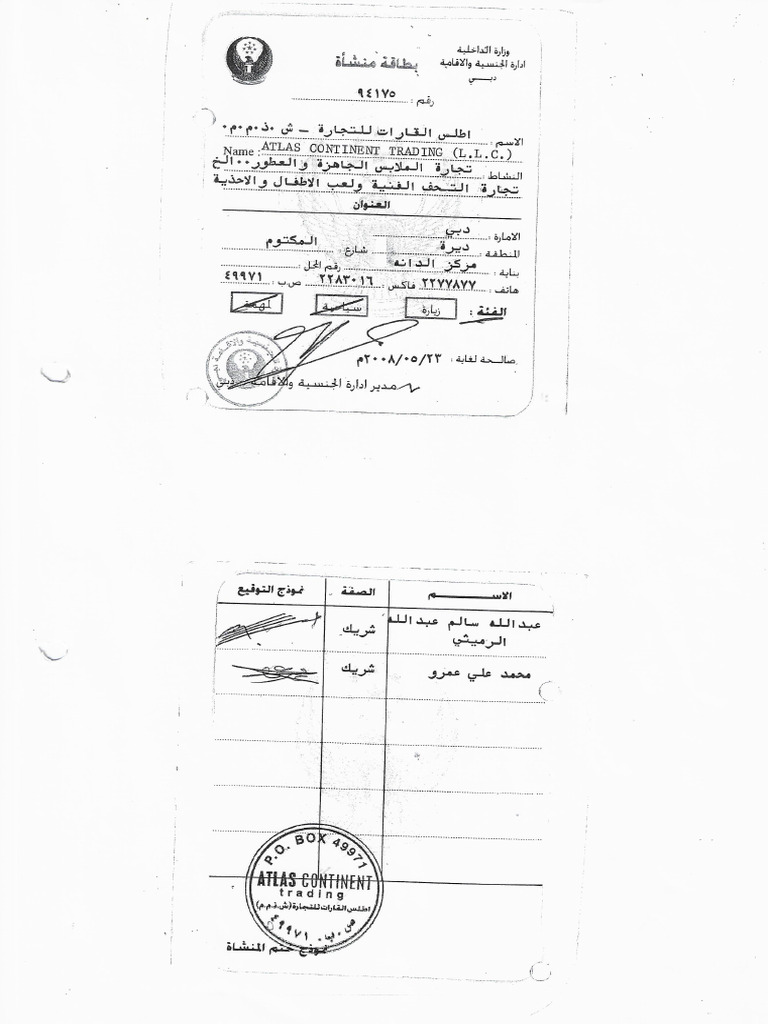 وزارة الداخلية
ادارة الجنسية والاقامة
دبـــي
بطاقة منشأة
رقم : ٩٤١٧٥
الاسم : اطلس القارات للتجارة – ش ٠ذ٠م٠م٠
Name ATLAS CONTINENT TRADING (L.L.C.)
النشاط : تجارة الملابس الجاهزة والعطور٠٠الخ
تجارة التحف الفنية ولعب الاطفال والاحذية
العنوان
الامارة : دبي
المنطقة : ديرة شارع : المكتوم
بناية : مركز الدانه رقم المحل :
هاتف : ٢٢٧٧٨٧٧ فاكس : ٢٢٨٣٠١٦ ص.ب : ٤٩٩٧١
الفئة : زيارة سياحية لمهمة
صالحة لغاية : ٢٠٠٨/٠٥/٢٣م
مدير ادارة الجنسية والاقامة - دبي
الاســـــم الصفة نموذج التوقيع
عبدالله سالم عبدالله الرميثي شريك
محمد علي عمرو شريك
P.O. BOX 49971
ATLAS CONTINENT
trading
اطلس القارات للتجارة (ش.ذ.م.م)
ص.ب. ٤٩٩٧١
نموذج ختم المنشاة